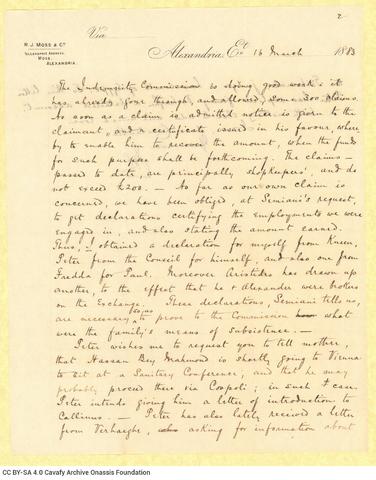 2
Via
R. J. MOSS & Co
TELEGRAPHIC ADDRESS,
MOSS.
ALEXANDRIA.
Alexandria, Et. 16 March 1883
The Indemnity Commission is doing good work: it
has already gone through, and allowed, some 300 claims.
As soon as a claim is admitted notice is given to the
claimant, and a certificate issued in his favour, where
by to enable him to recover the amount, when the funds
for such purpose shall be forthcoming. The claims
passed to date, are principally shopkeepers', and do
not exceed £200. — As far as our own claim is
concerned, we have been obliged, at Semiani's request,
to get declarations certifying the employments we were
engaged in, and also stating the amount earned.
Thus, I obtained a declaration for myself from
Peter from the Council for himself, and also one from
Fredda for Paul. Moreover Aristides has drawn up
another, to the effect that he & Alexander were brokers
on the Exchange. These declarations, Semiani tells us,
are necessary to prove to the Commission what
were the family's means of subsistence. —
Peter wishes me to request you to tell mother,
that Hassan Bey Mahmoud is shortly going to Vienna
to sit at a Sanitary Conference; and that he may
probably proceed there via Conpoli; in such case,
Peter intends giving him a letter of introduction to
Callinus. — Peter has also lately received a letter
from Verhaeghe, asking for information about
CC BY-SA 4.0 Cavafy Archive Onassis Foundation